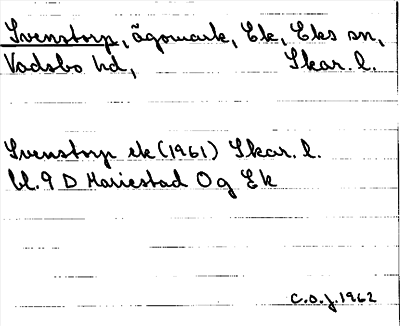 Svenstorp, ägomark, Ek, Eks sn,
Vadsbo hd, Skar. l.
Svenstorp ek (1961) Skar. l.
bl. 9 D Mariestad O g Ek
C.O.J. 1962